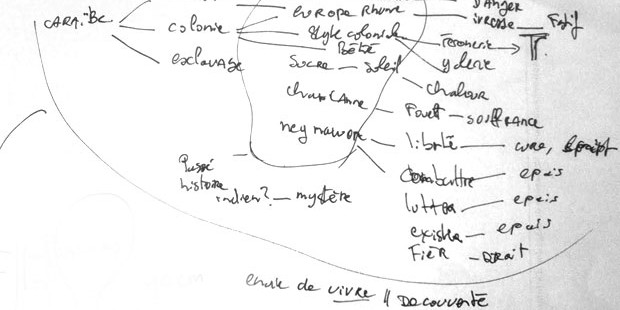 DANGER
EUROPE Rhum ivresse — Festif
CARAÏBE colonie Style colonial Ferronerie T
Bébé ylerie
esclavage Sucre — Soleil
chaleur
champ Canne Fouet — SOUFFRANCE
neg mawon liberté — cure,
Passé Combattre epais
histoire
indien? — mystère lutter epais
exister — epais
FiER — DRoit
envie de vivre // DECOUVERTE